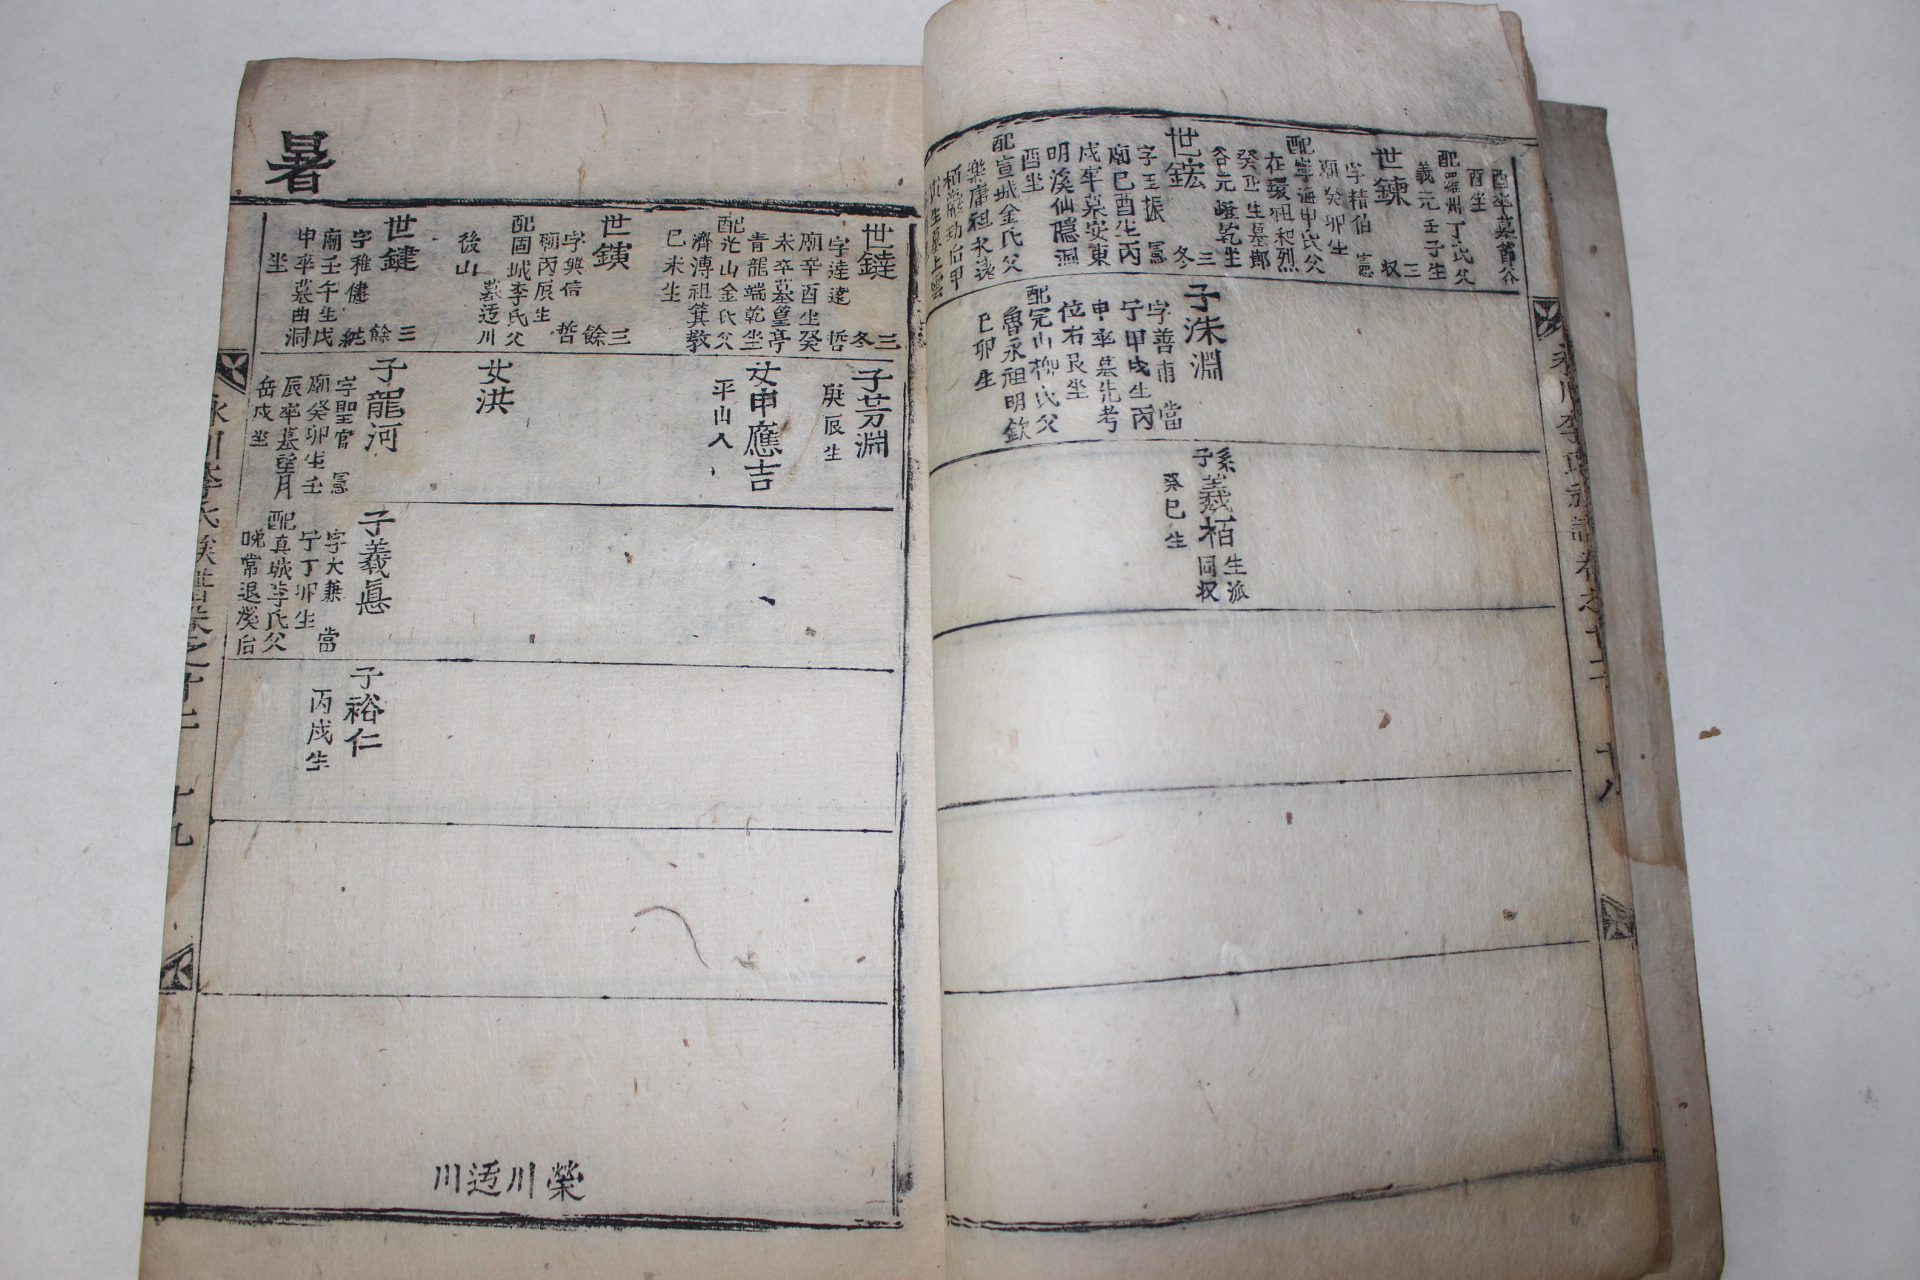 酉坐
配羅州丁氏父
義元壬子生
世鍊
三
字精伯
憲
廟癸卯生
配寧海申氏父
在環祖和烈
癸丑生墓郎
谷元嶝乾坐
世鋐
三
冬
字玉振
憲
廟己酉生丙
戌卒墓安東
明溪仙隱洞
酉坐
配宣城金氏父
樂庸祖永遠
子洙淵
字善甫
當
宁甲戌生丙
申卒墓先考
位右艮坐
配完山柳氏父
魯永祖明欽
己卯生
系子羲栢
生派
同
癸巳生
廿八
暑
世鐽
三
冬
字達達
哲
廟辛酉生癸
未卒墓篁亭
青龍端乾坐
配光山金氏父
濟溥祖箕敎
己未坐
世鐄
三
餘
字奐信
哲
廟丙辰生
配固城李氏父
墓适川
後山
世鍵
三
餘
字稚健
純
廟壬午生戊
申卒墓曲洞
坐
子芳淵
庚辰生
女申應吉
平山人
女洪
子龍河
字聖官
憲
廟癸卯生壬
辰卒墓望月
岳戌坐
子義惪
字大兼
當
宁丁卯生
配眞城李氏父
晩常退溪后
子裕仁
丙戌生
榮川适川
永川李氏族譜卷之廿二
十九